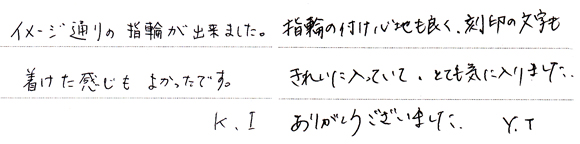 イメージ通りの指輪が出来ました。
着けた感じもよかったです。
K.I
指輪の付け心地も良く、刻印の文字も
きれいに入っていて、とても気に入りました。
ありがとうございました。 Y.T